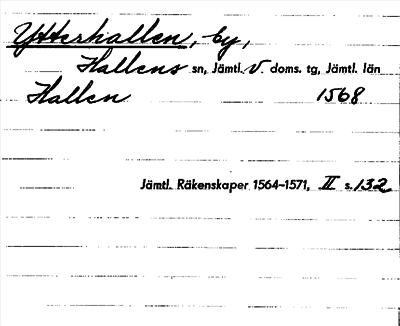 Ytterhallen, by,
Hallens sn, Jämtl. V. doms. tg, Jämtl. län
Hallen 1568
Jämtl. Räkenskaper 1564-1571, II s. 132